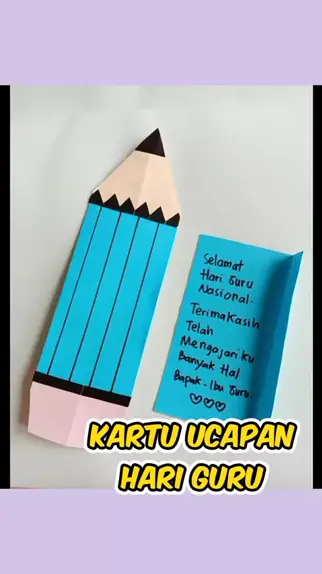 Selamat
Hari Guru
Nasional.
Terimakasih
Telah
Mengajariku
Banyak Hal
Bapak-Ibu Guru.
♡♡♡
KARTU UCAPAN
HARI GURU